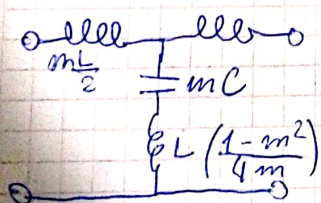 mL/2
mC
L (1-m²/4m)